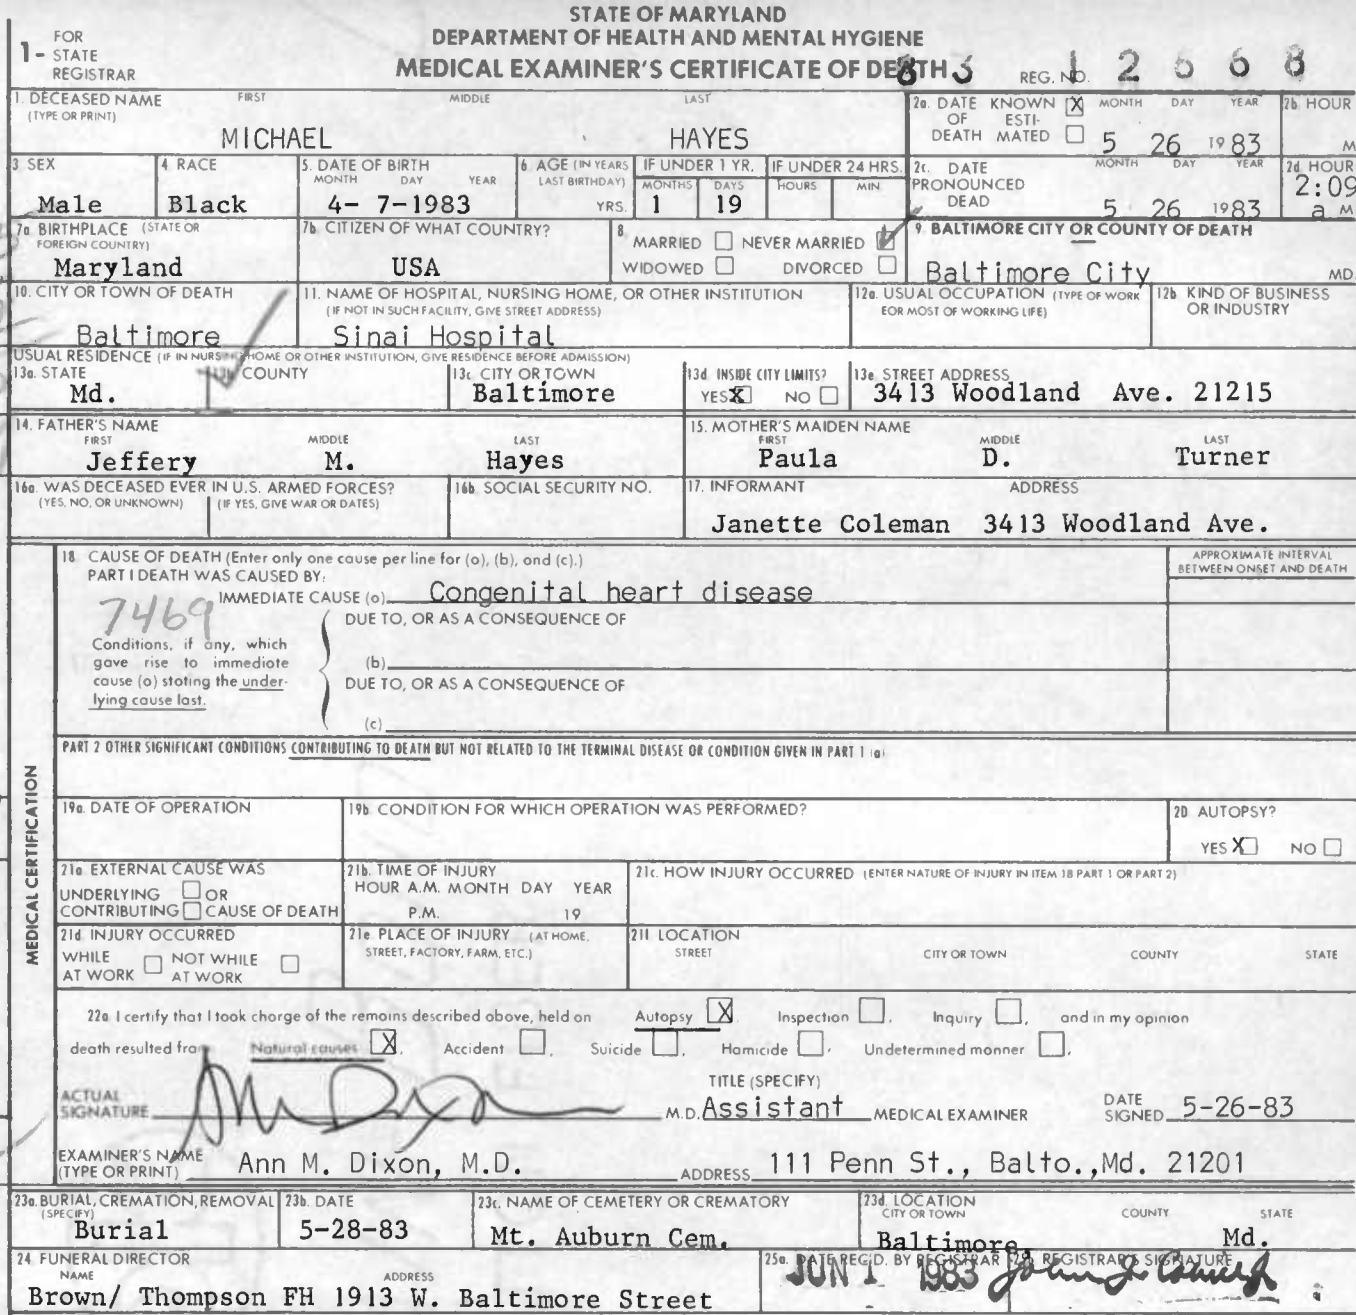 STATE OF MARYLAND
DEPARTMENT OF HEALTH AND MENTAL HYGIENE
MEDICAL EXAMINER'S CERTIFICATE OF DEATH
1- FOR STATE REGISTRAR
83 REG. NO. 1 2 6 6 8
1. DECEASED NAME (TYPE OR PRINT) FIRST MIDDLE LAST
MICHAEL HAYES
2a. DATE OF DEATH KNOWN X ESTIMATED MONTH DAY YEAR
5 26 1983
2b. HOUR
M
3 SEX
Male
4. RACE
Black
5. DATE OF BIRTH MONTH DAY YEAR
4- 7-1983
6. AGE (IN YEARS LAST BIRTHDAY)
YRS.
IF UNDER 1 YR. MONTHS DAYS
1 19
IF UNDER 24 HRS. HOURS MIN.
2c. DATE PRONOUNCED DEAD MONTH DAY YEAR
5 26 1983
2d HOUR
2:09 a M
7a. BIRTHPLACE (STATE OR FOREIGN COUNTRY)
Maryland
7b. CITIZEN OF WHAT COUNTRY?
USA
8. MARRIED NEVER MARRIED
WIDOWED DIVORCED
9. BALTIMORE CITY OR COUNTY OF DEATH
Baltimore City MD.
10. CITY OR TOWN OF DEATH
Baltimore
11. NAME OF HOSPITAL, NURSING HOME, OR OTHER INSTITUTION
(IF NOT IN SUCH FACILITY, GIVE STREET ADDRESS)
Sinai Hospital
12a. USUAL OCCUPATION (TYPE OF WORK FOR MOST OF WORKING LIFE)
12b. KIND OF BUSINESS OR INDUSTRY
USUAL RESIDENCE (IF IN NURSING HOME OR OTHER INSTITUTION, GIVE RESIDENCE BEFORE ADMISSION)
13a. STATE
Md.
13b. COUNTY
13c. CITY OR TOWN
Baltimore
13d. INSIDE CITY LIMITS?
YES X NO
13e. STREET ADDRESS
3413 Woodland Ave. 21215
14. FATHER'S NAME
FIRST MIDDLE LAST
Jeffery M. Hayes
15. MOTHER'S MAIDEN NAME
FIRST MIDDLE LAST
Paula D. Turner
16a. WAS DECEASED EVER IN U.S. ARMED FORCES?
(YES, NO, OR UNKNOWN) (IF YES, GIVE WAR OR DATES)
16b. SOCIAL SECURITY NO.
17. INFORMANT ADDRESS
Janette Coleman 3413 Woodland Ave.
MEDICAL CERTIFICATION
18. CAUSE OF DEATH (Enter only one cause per line for (a), (b), and (c).)
PART I DEATH WAS CAUSED BY:
APPROXIMATE INTERVAL BETWEEN ONSET AND DEATH
IMMEDIATE CAUSE (a) Congenital heart disease
7469
DUE TO, OR AS A CONSEQUENCE OF
Conditions, if any, which
gave rise to immediate
cause (a) stating the under-
lying cause last.
(b)
DUE TO, OR AS A CONSEQUENCE OF
(c)
PART 2 OTHER SIGNIFICANT CONDITIONS CONTRIBUTING TO DEATH BUT NOT RELATED TO THE TERMINAL DISEASE OR CONDITION GIVEN IN PART 1 (a)
19a. DATE OF OPERATION
19b. CONDITION FOR WHICH OPERATION WAS PERFORMED?
20 AUTOPSY?
YES X NO
21a EXTERNAL CAUSE WAS
UNDERLYING OR
CONTRIBUTING CAUSE OF DEATH
21b. TIME OF INJURY
HOUR A.M. MONTH DAY YEAR
P.M. 19
21c. HOW INJURY OCCURRED (ENTER NATURE OF INJURY IN ITEM 18 PART 1 OR PART 2)
21d INJURY OCCURRED
WHILE AT WORK NOT WHILE AT WORK
21e. PLACE OF INJURY (AT HOME, STREET, FACTORY, FARM, ETC.)
21f. LOCATION
STREET CITY OR TOWN COUNTY STATE
22a I certify that I took charge of the remains described above, held on Autopsy X, Inspection, Inquiry, and in my opinion
death resulted from Natural causes X, Accident, Suicide, Homicide, Undetermined manner.
ACTUAL SIGNATURE
M.D.
TITLE (SPECIFY)
Assistant MEDICAL EXAMINER
DATE SIGNED 5-26-83
EXAMINER'S NAME (TYPE OR PRINT) Ann M. Dixon, M.D.
ADDRESS 111 Penn St., Balto.,Md. 21201
23a. BURIAL, CREMATION, REMOVAL (SPECIFY)
Burial
23b. DATE
5-28-83
23c. NAME OF CEMETERY OR CREMATORY
Mt. Auburn Cem.
23d. LOCATION
CITY OR TOWN COUNTY STATE
Baltimore, Md.
24 FUNERAL DIRECTOR
NAME ADDRESS
Brown/ Thompson FH 1913 W. Baltimore Street
25a. DATE REC'D. BY REGISTRAR
JUN 1 1983
25b. REGISTRAR'S SIGNATURE